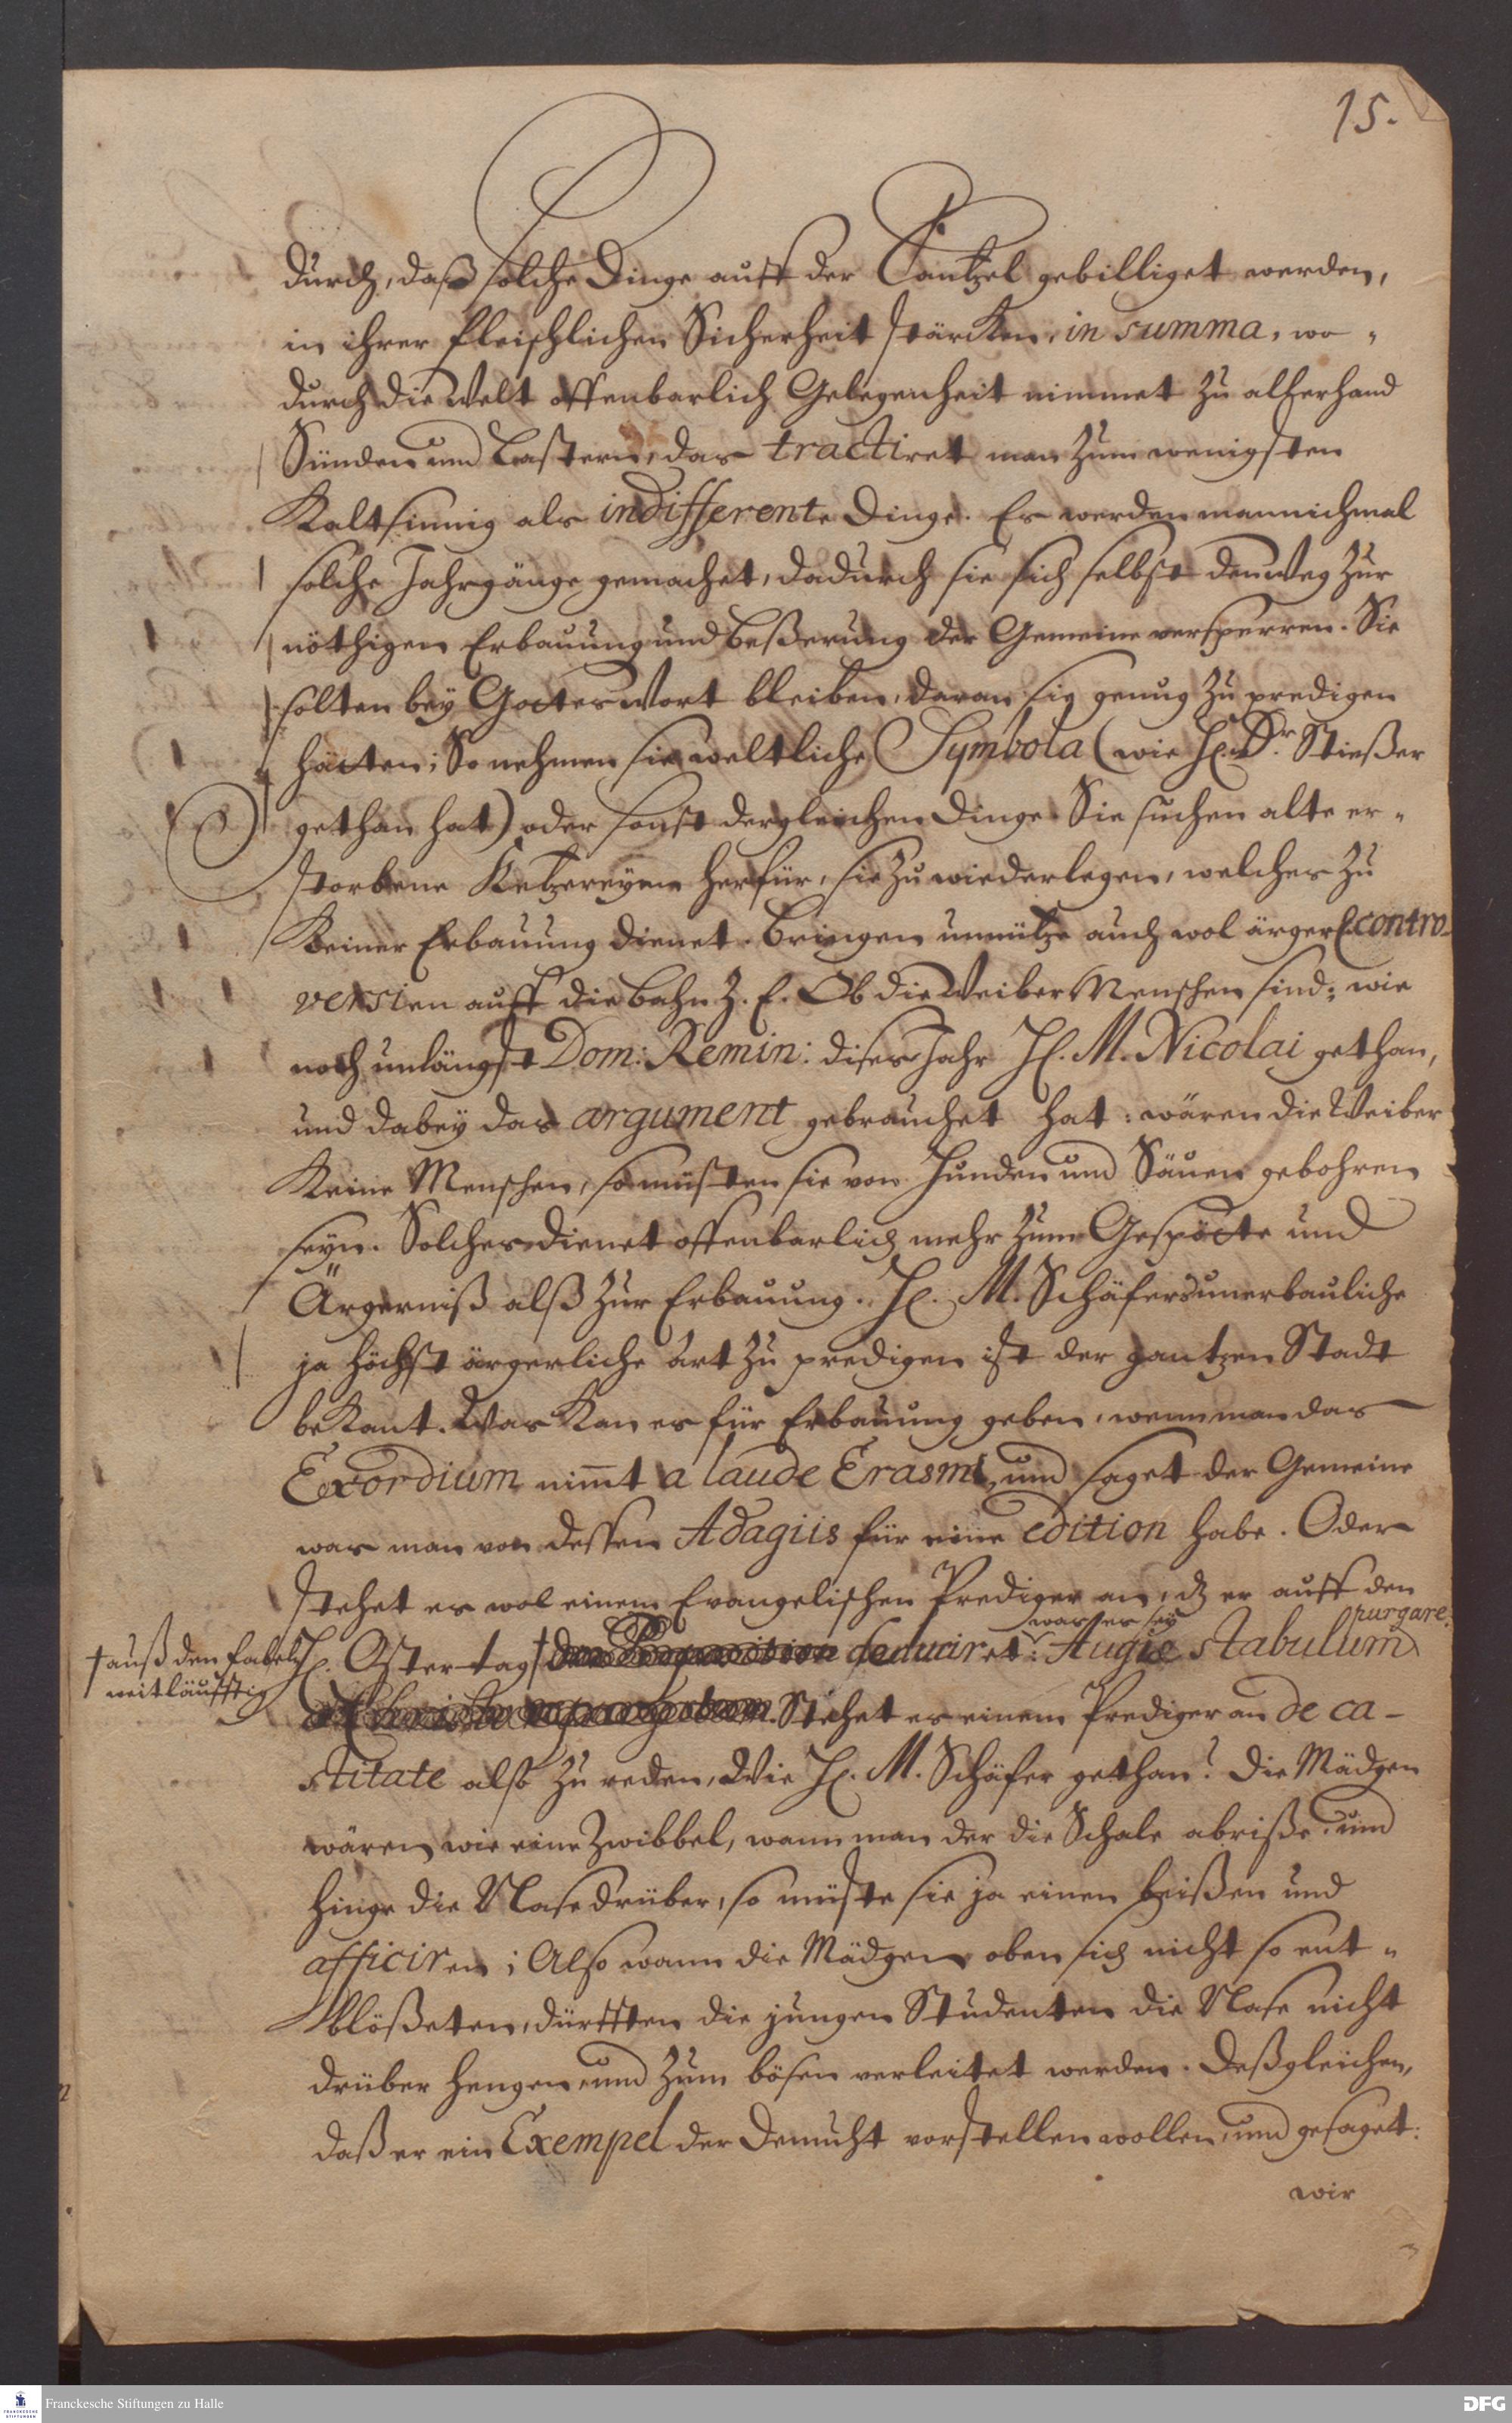 15.
durch, daß solche Dinge auff der Cantzel gebilliget werden,
in ihrer fleischlichen Sicherheit stärcken, in summa, wo-
durch die Welt offenbarlich Gelegenheit nimmet zu allerhand
Sünden und Lastern, das tractiret man zum wenigsten
Kaltsinnig als indifferente Dinge. Es werden mannichmal
solche Jahrgänge gemachet, dadurch sie sich selbst den Weg zur
nöthigen Erbauung und Beßerung der Gemeine versperren. Sie
solten bey Gottes Wort bleiben, daran sie genug zu predigen
hätten; So nehmen sie weltliche Symbola (wie H. Dr. Stießer
gethan hat) oder sonst dergleichen Dinge. Sie suchen alte er-
storbene Ketzereyen herfür, sie zu wiederlegen, welches zu
Keiner Erbauung dienet. Bringen unnütze auch wol ärgerl. contro-
versien auff die Bahn z. E. Ob die Weiber Menschen sind; wie
noch unlängst Dom: Remin: dises Jahr H. M. Nicolai gethan,
und dabey das argument gebrauchet hat: wären die Weiber
Keine Menschen, so müsten sie von Hunden und Säuen gebohren
seyn. Solches dienet offenbarlich mehr zum Gespötte und
Ärgerniß alß zur Erbauung. H. M. Schäfers unerbauliche
ja höchst ärgerliche art zu predigen ist der gantzen Stadt
beKant. Was Kan es für Erbauung geben, wenn man das
Exordium nimt a laude Erasmi, und saget der Gemeine
was man von dessen Adagiis für eine edition habe. Oder
stehet es wol einem Evangelischen Prediger an, dz er auff den
was es sey purgare
H. Ostertag † deduciret: Augiae stabulum
† auß den Fabeln
weitläufftig
Stehet es einem Prediger an de ca-
stitate also zu reden, Wie H. M. Schäfer gethan? Die Mädgen
wären wie eine Zwibbel, wann man der die Schale abriße, und
hinge die Nase drüber, so müste sie ja einen beißen und
afficiren; Also wann die Mädgen oben sich nicht so ent-
blößeten, dürfften die jungen Studenten die Nase nicht
drüber hengen, und zum bösen verleitet werden. Deßgleichen,
daß er ein Exempel der Demuht vorstellen wollen, und gesaget:
wir
Franckesche Stiftungen zu Halle
DFG